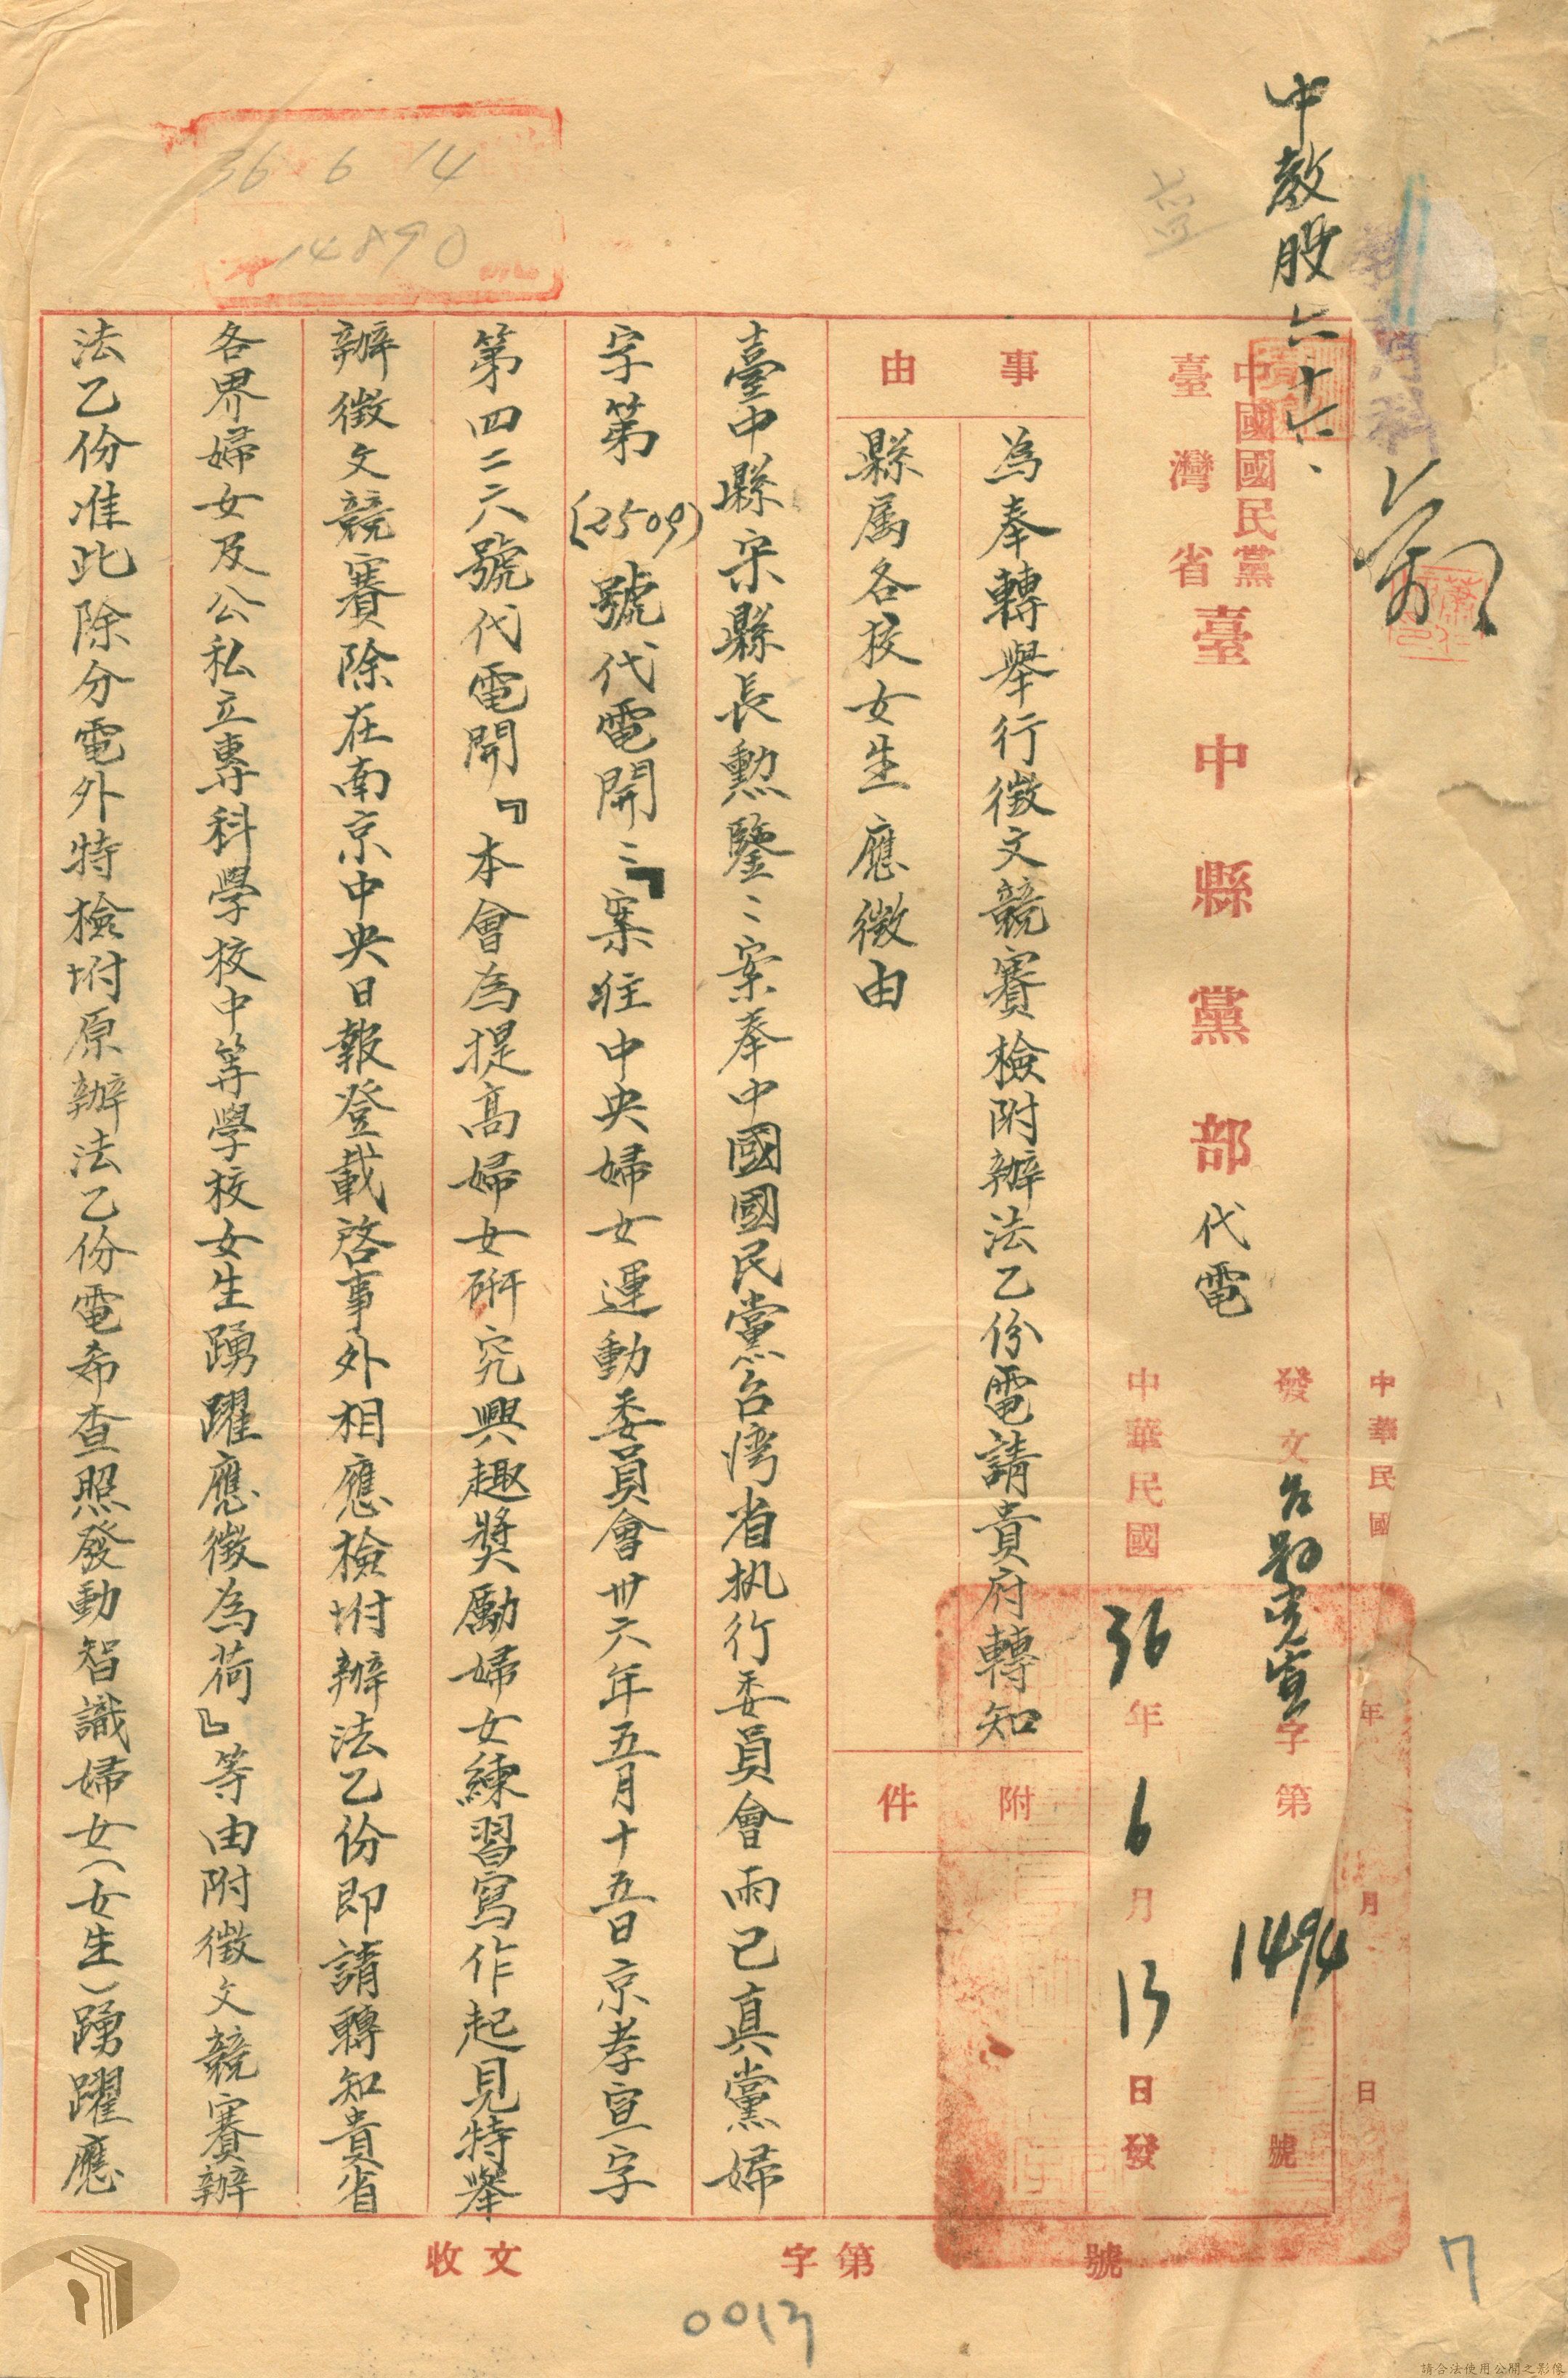 中教股六十六、
36 6 14
14890
中國國民黨
臺灣省
臺中縣黨部代電
中華民國 年 月 日
發文 宣字第1494號
中華民國36年6月13日發
事由
為奉轉舉行徵文競賽檢附辦法乙份電請貴府轉知
縣属各校女生應徵由
附件
臺中縣宋縣長勲鑒:案奉中國國民黨台湾省执行委員會雨已真黨婦
字第(2509)號代電開:『案准中央婦女運動委員會卅六年五月十五日京孝宣字
第四二六號代電開『本會為提高婦女研究興趣獎勵婦女練習寫作起見特舉
辦徵文競賽除在南京中央日報登載啓事外相應檢坿辦法乙份即請轉知貴省
各界婦女及公私立專科學校中等學校女生踴躍應徵為荷』等由附徵文競賽辦
法乙份准此除分電外特檢坿原辦法乙份電希查照發動智識婦女(女生)踴躍應
收文 字第 號
0013
7
請合法使用公開之影像